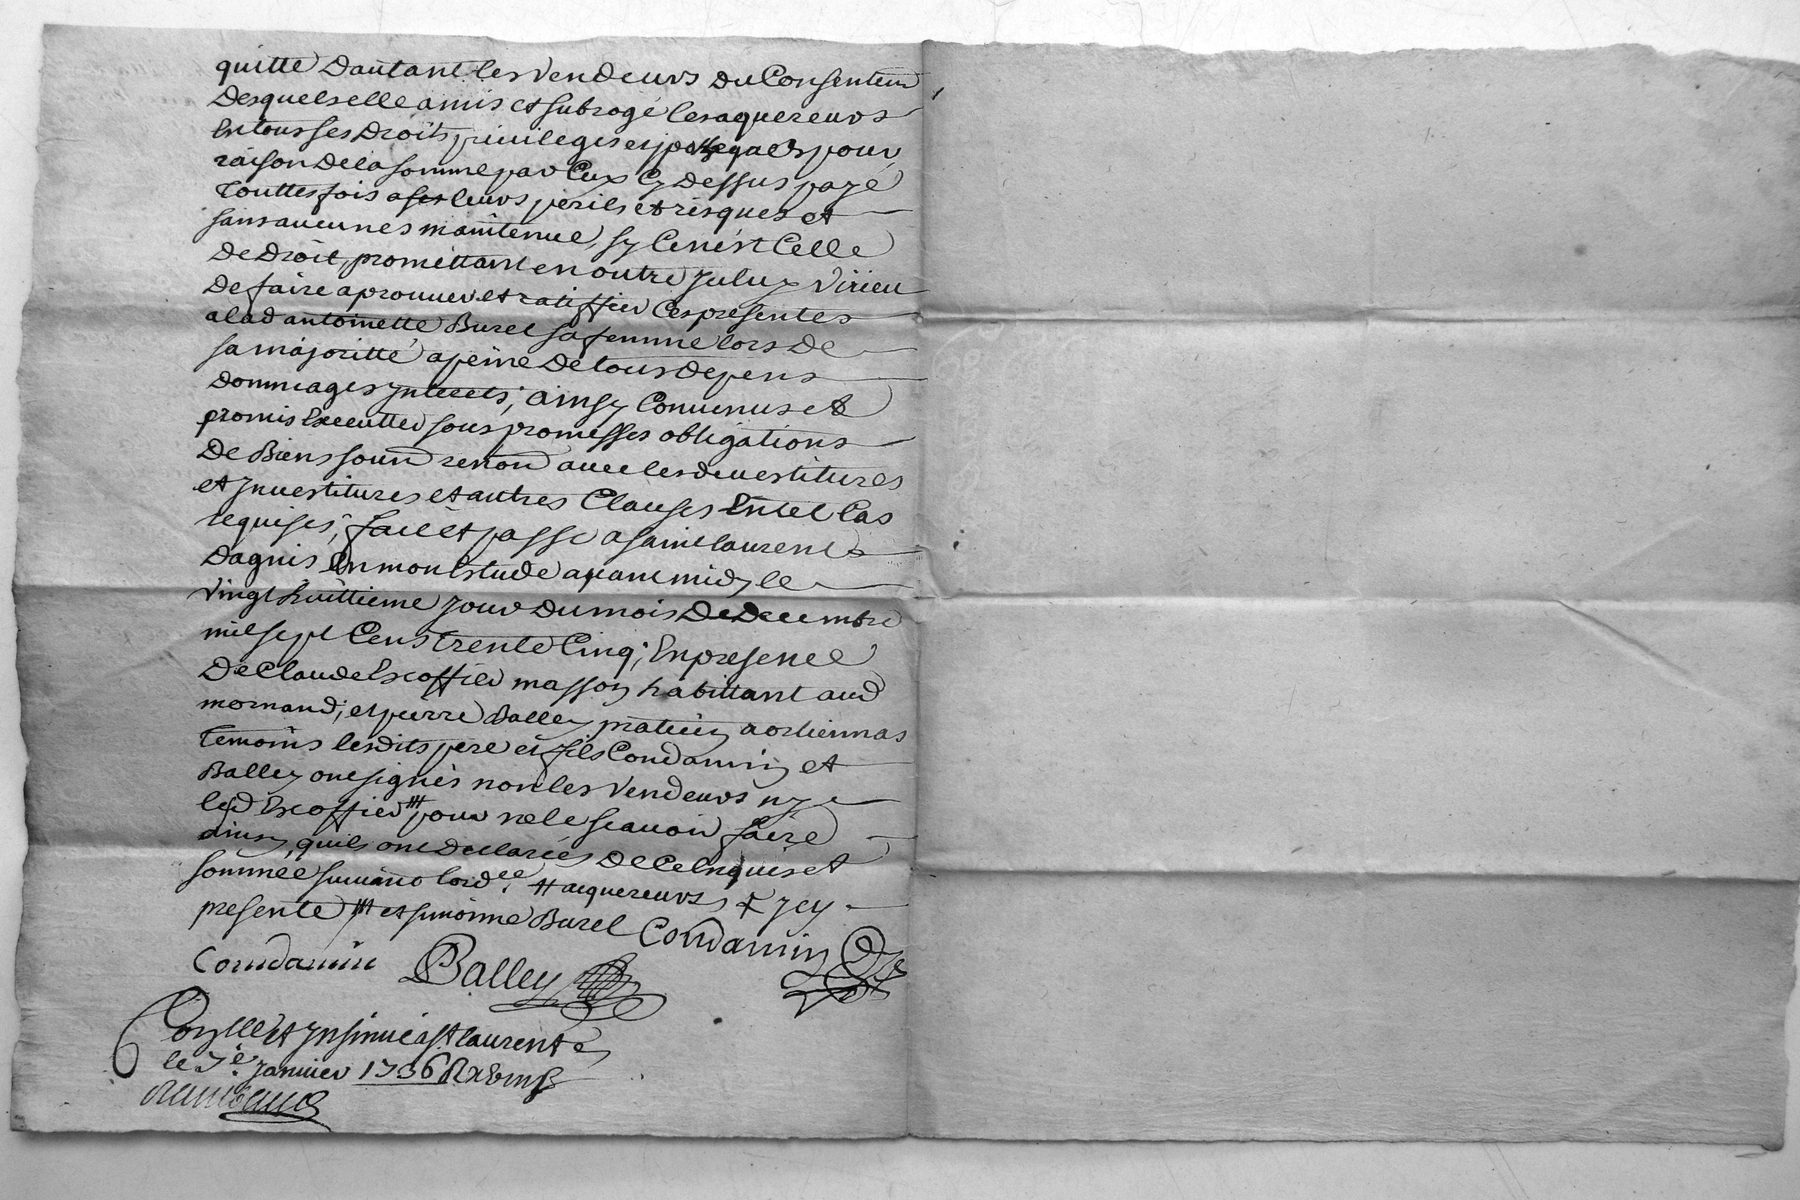 quitte Dautant les vendeurs Du Consentem
Desquels elle a mis et subrogé les aquereurs
En tous ses Droits privileges et ypotteques pour
raison De la somme par Eux Cy Dessus payé
touttesfois a ses leurs perils et risques et
sans aucunes maintenue, sy Ce nest Celle
De Droit, promettant en outre led Virieu
De faire aprouuer et ratiffier Ces presentes
a lad antoinette Burel sa femme lors De
sa majoritté a peine De tous depens
Dommages Interets; ainsy Conuenus et
promis Executter sous promesses obligations
De Biens soum renon auec les deuestitures
et Inuestitures et autres Clauses En tel Cas
requises; fait et passé a saint laurent
Dagnis En mon Estude auant midy le
vingt huittieme Jour Du mois De Decembre
mil sept Cens trente Cinq; En presence
De Claude Escoffier masson habittant aud
mornand; et pierre Balley praticien a orlienas
temoins lesdits pere et fils Condamin et
Balley ont signés non les vendeurs ny
led Escoffier pour ne le scauoir faire
ainsy quils ont Declarés De Ce Enquis et
sommés suiuant lord ce # aquereurs, Icy
presente et simonne Burel Condamin
Condamin Balley
Conllé et Insinué a St laurent
le 7e Januier 1736